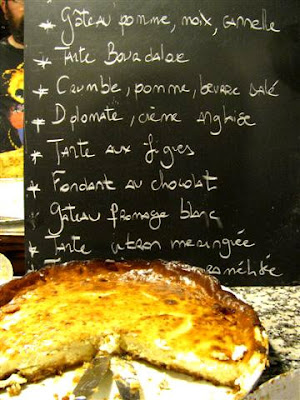 * Gâteau pomme, noix, cannelle
* Tarte Bourdaloue
* Crumble, pomme, beurre salé
* Diplomate, crème anglaise
* Tarte aux figues
* Fondant au chocolat
* Gâteau fromage blanc
* Tarte citron meringuée
* Tarte